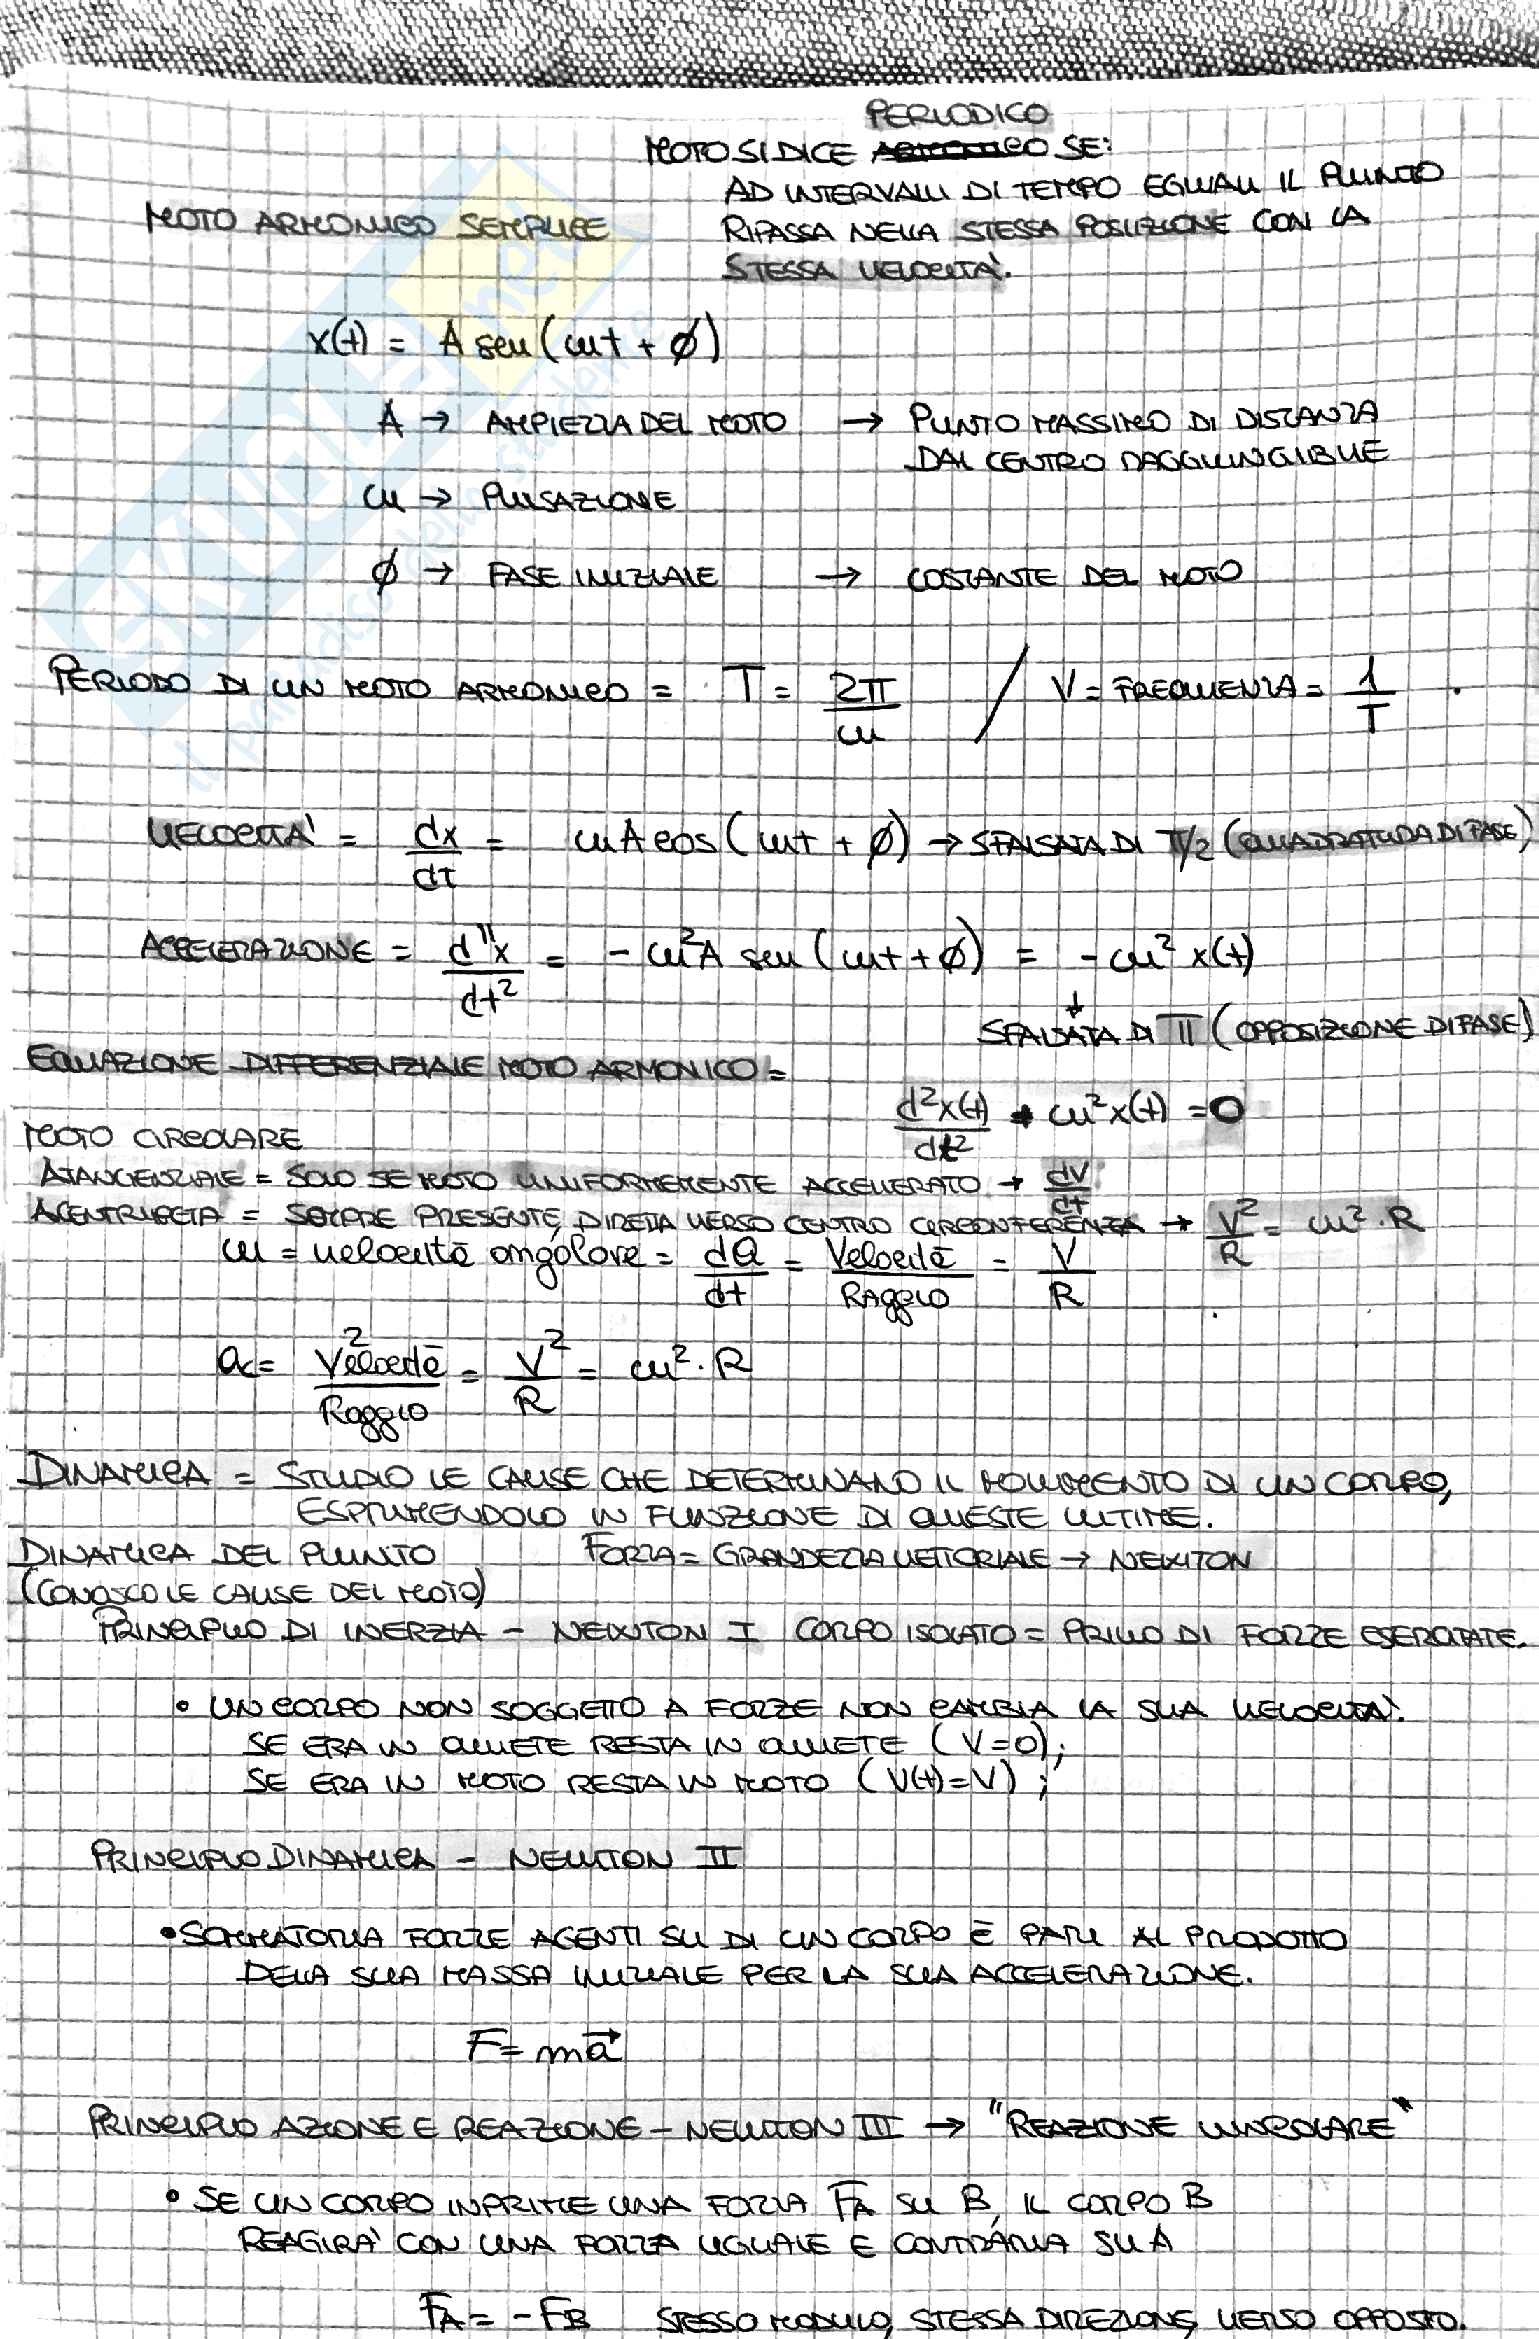 PERIODICO
MOTO SI DICE ARMONICO SE:
AD INTERVALLI DI TEMPO EGUALI IL PUNTO
MOTO ARMONICO SEMPLICE RIPASSA NELLA STESSA POSIZIONE CON LA
STESSA VELOCITA'.
x(t) = A sen (ωt + ϕ)
A → AMPIEZZA DEL MOTO → PUNTO MASSIMO DI DISTANZA
DAL CENTRO RAGGIUNGIBILE
ω → PULSAZIONE
ϕ → FASE INIZIALE → COSTANTE DEL MOTO
PERIODO DI UN MOTO ARMONICO = T = 2π/ω / ν = FREQUENZA = 1/T .
VELOCITA' = dx/dt = ωA cos (ωt + ϕ) → SFALSATA DI π/2 (QUADRATURA DI FASE)
ACCELERAZIONE = d"x/dt² = - ω²A sen (ωt + ϕ) = - ω² x(t)
↓
SFALSATA DI π (OPPOSIZIONE DI FASE)
EQUAZIONE DIFFERENZIALE MOTO ARMONICO =
d²x(t)/dt² + ω²x(t) = 0
MOTO CIRCOLARE
ATANGENZIALE = SOLO SE MOTO UNIFORMEMENTE ACCELLERATO → dv/dt
ACENTRIPETA = SEMPRE PRESENTE, DIRETTA VERSO CENTRO CIRCONFERENZA → V²/R = ω² · R
ω = velocità angolare = dθ/dt = Velocità/Raggio = V/R
ac = Velocità²/Raggio = V²/R = ω² · R
DINAMICA = STUDIO LE CAUSE CHE DETERMINANO IL MOVIMENTO DI UN CORPO,
ESPRIMENDOLO IN FUNZIONE DI QUESTE ULTIME.
DINAMICA DEL PUNTO FORZA = GRANDEZZA VETTORIALE → NEWTON
(CONOSCO LE CAUSE DEL MOTO)
PRINCIPIO DI INERZIA - NEWTON I CORPO ISOLATO = PRIVO DI FORZE ESERCITATE.
• UN CORPO NON SOGGETTO A FORZE NON CAMBIA LA SUA VELOCITA'.
SE ERA IN QUIETE RESTA IN QUIETE (V=0);
SE ERA IN MOTO RESTA IN MOTO (V(t)=V);
PRINCIPIO DINAMICA - NEWTON II
• SOMMATORIA FORZE AGENTI SU DI UN CORPO È PARI AL PRODOTTO
DELLA SUA MASSA INIZIALE PER LA SUA ACCELERAZIONE.
F = ma⃗
PRINCIPIO AZIONE E REAZIONE - NEWTON III → "REAZIONE VINCOLARE"
• SE UN CORPO INPRIME UNA FORZA F̄A SU B, IL CORPO B
REAGIRA' CON UNA FORZA UGUALE E CONTRARIA SU A
F̄A = - F̄B STESSO MODULO, STESSA DIREZIONE, VERSO OPPOSTO.
SKUOLA.net
il paradiso dello studente